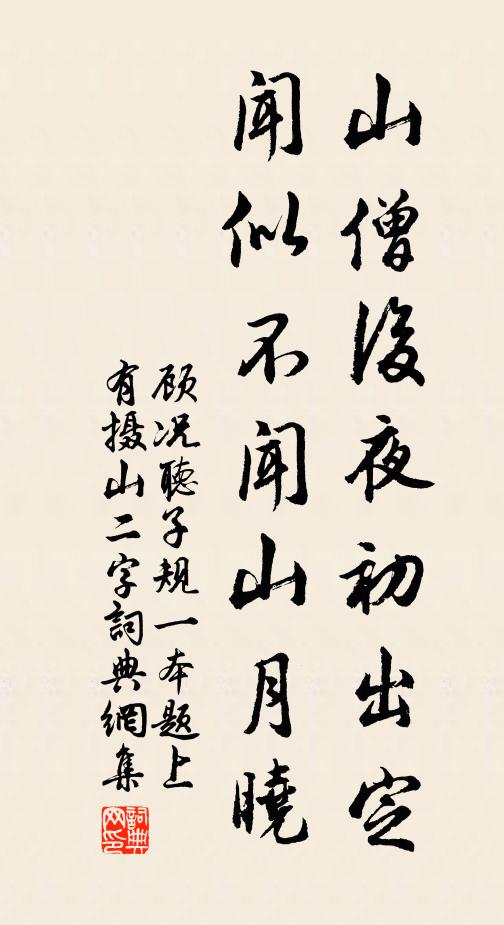 山僧後夜初出定
聞似不聞山月曉
顾况聽子規一本题上
有摄山二字詞典網集
詞典网印